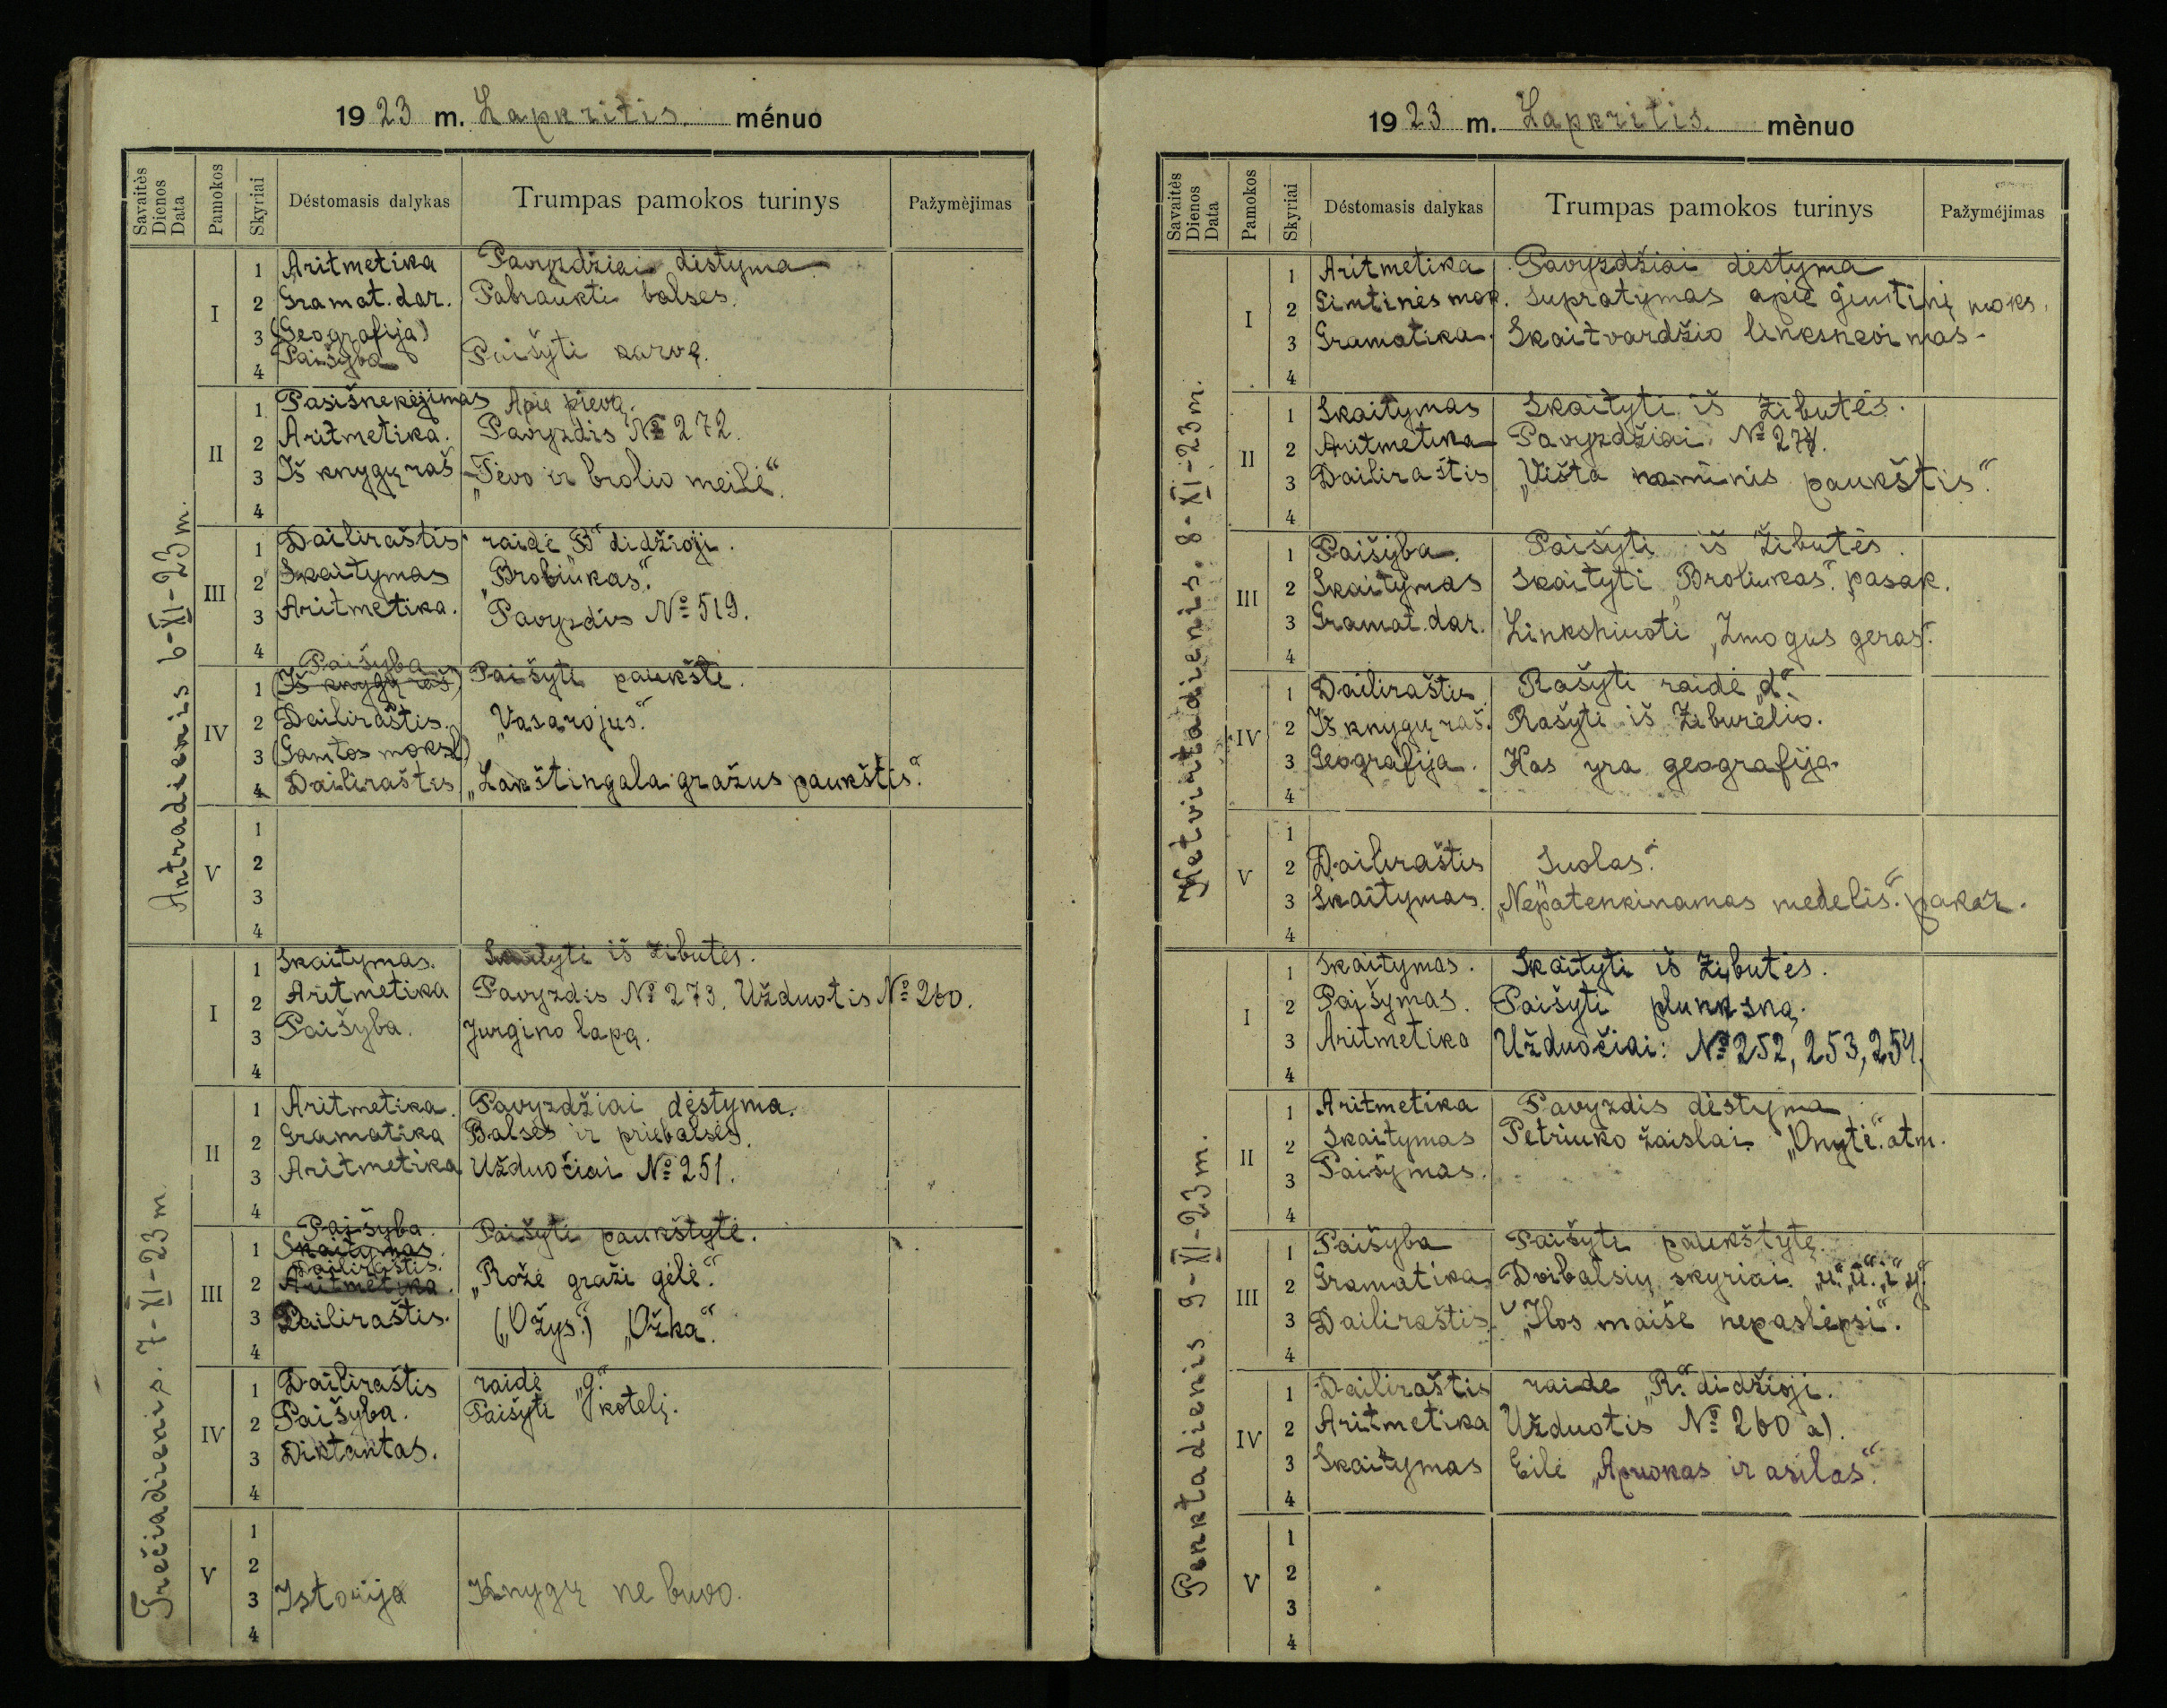 1923 m. Lapkritis. ménuo
Savaitės Dienos Data Pamokos Skyriai Déstomasis dalykas Trumpas pamokos turinys Pažymėjimas
Antradienis 6-XI-23 m.
I
1 Aritmetika Pavyzdžiai distyma
2 Gramat. dar. Pabraukti balses.
3 (Geografija)
Paišyba Paišyti karvę.
4
II
1 Pasišnekėjimas Apie pievą.
2 Aritmetika. Pavyzdis № 272.
3 Iš knygų raš „Tėvo ir brolio meilė“.
4
III
1 Dailiraštis raidė „B“ didžioji.
2 Skaitymas „Broliukas“.
3 Aritmetika. Pavyzdis № 519.
4
IV
Paišyba
1 (Iš knygų raš) Paišyti paukštė.
2 Dailiraštis. „Vasarojus“.
3 (Gamtos moksl)
4 Dailiraštis „Lakštingala gražus paukštis“.
V
1
2
3
4
Trečiadienis. 7-XI-23 m.
I
1 Skaitymas. Skaityti iš žibutės.
2 Aritmetika Pavyzdis № 273. Užduotis № 260.
3 Paišyba. Jurgino lapą.
4
II
1 Aritmetika. Pavyzdžiai dėstyma.
2 Gramatika Balsės ir priebalsės.
3 Aritmetika Užduočiai № 251.
4
III
Paišyba.
1 Skaitymas. Paišyti paukštytė.
Dailiraštis.
2 Aritmetika. „Rožė graži gėlė“.
3 Dailiraštis. („Ožys“.) „Ožka“.
4
IV
1 Dailiraštis raidė „g“.
2 Paišyba. Paišyti kotelį.
3 Diktantas.
4
V
1
2
3 Istorija Knygų ne buvo.
4
1923 m. Lapkritis. mènuo
Savaitės Dienos Data Pamokos Skyriai Déstomasis dalykas Trumpas pamokos turinys Pažyméjimas
Ketvirtadienis. 8-XI-23 m.
I
1 Aritmetika Pavyzdžiai dėstyma
2 Gimtinės mok. Supratymas apie gimtinę moks.
3 Gramatika. Skaitvardžio linksnevimas.
4
II
1 Skaitymas Skaityti iš žibutės.
2 Aritmetika Pavyzdžiai № 274.
3 Dailiraštis „Višta naminis paukštis“.
4
III
1 Paišyba. Paišyti iš žibutės.
2 Skaitymas Skaityti „Broliukas“. pasak.
3 Gramat. dar. Linksniuoti „Žmogus geras“.
4
IV
1 Dailiraštis Rašyti raidė „d“.
2 Iš knygų raš. Rašyti iš Žiburėlio.
3 Geografija. Kas yra geografija.
4
V
1
2 Dailiraštis Suolas“.
3 Skaitymas. „Nepatenkinamas medelis“. pakar.
4
Penktadienis 9-XI-23 m.
I
1 Skaitymas. Skaityti iš žibutės.
2 Paišymas. Paišyti plunksną.
3 Aritmetika Užduočiai: № 252, 253, 254.
4
II
1 Aritmetika Pavyzdis dėstyma
2 Skaitymas Petriuko žaislai. „Onytė“. atm.
3 Paišymas.
4
III
1 Paišyba Paišyti paukštytę.
2 Gramatika. Dvibalsių skyriai.
3 Dailiraštis. „Ylos maiše nepaslėpsi“.
4
IV
1 Dailiraštis raidė „R“. didžioji.
2 Aritmetika Užduotis № 260 a).
3 Skaitymas Eilė „Apuokas ir asilas“.
4
V
1
2
3
4